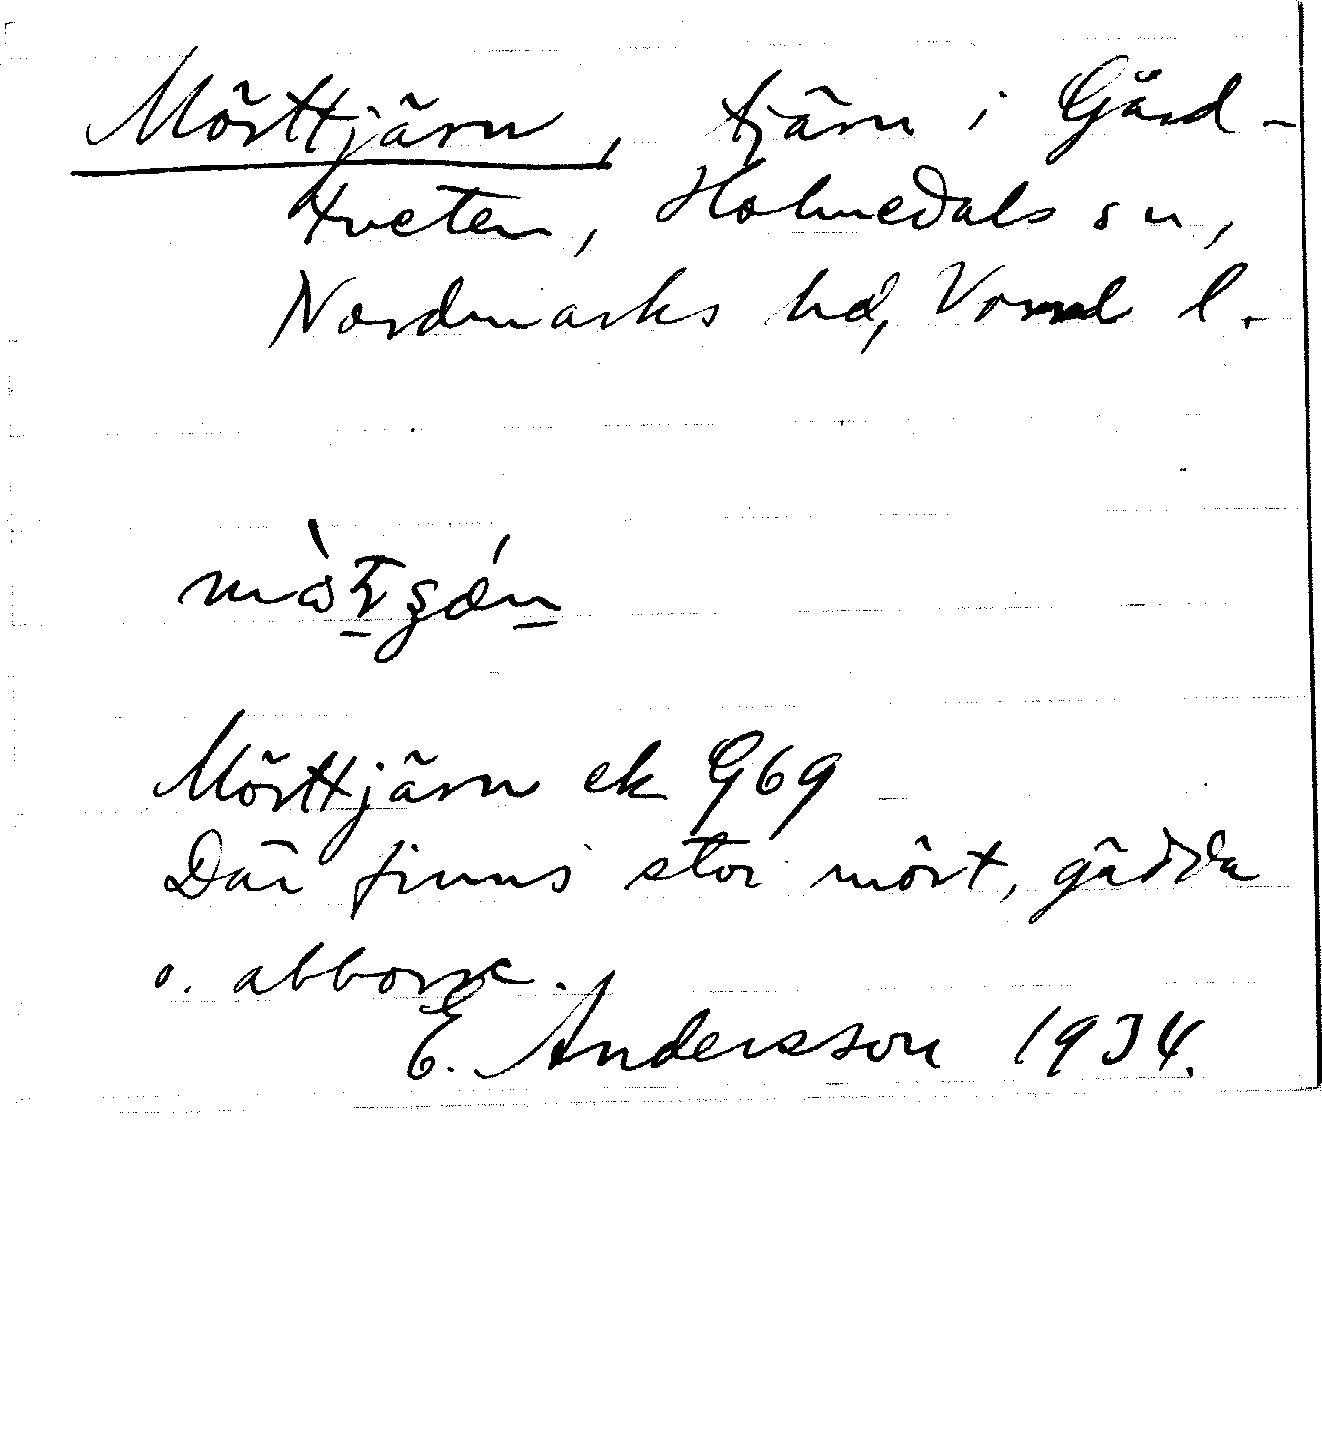 Mörttjärn, tjärn i Gård-
tveten, Holmedals sn,
Nordmarks hd, Värml l.
Mörttjärn ek 969
Där finns stor mört, gädda
o. abborre.
E. Andersson 1934.